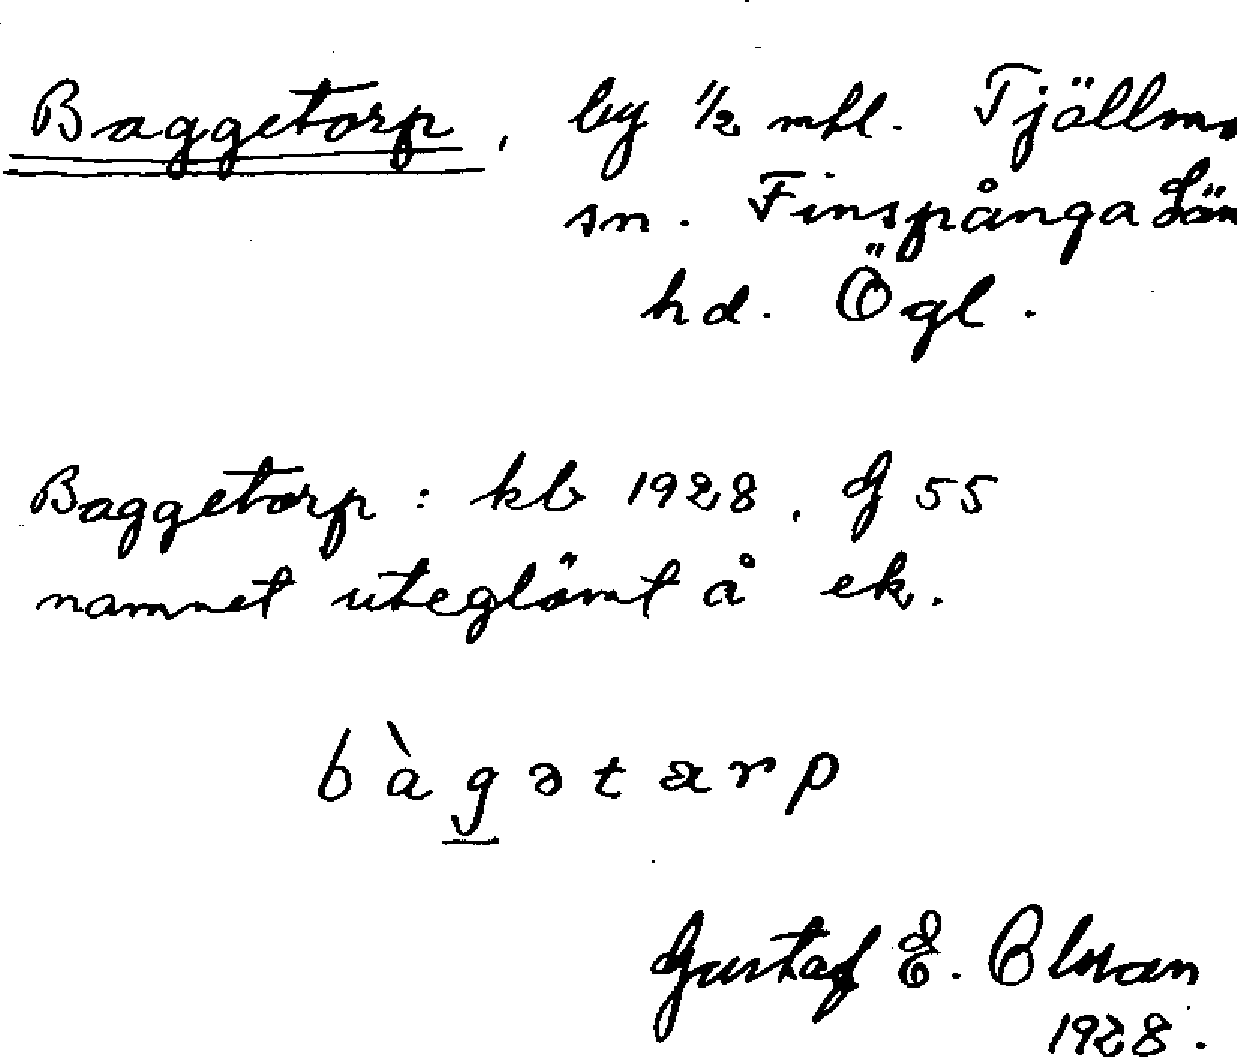 Baggetorp, by ½ mtl. Tjällmo
sn. Finspånga Län
hd. Ögl.
Baggetorp: kb 1928, G 55
namnet uteglömt å ek.
bàgətarp
Gustaf E. Olsson
1928.